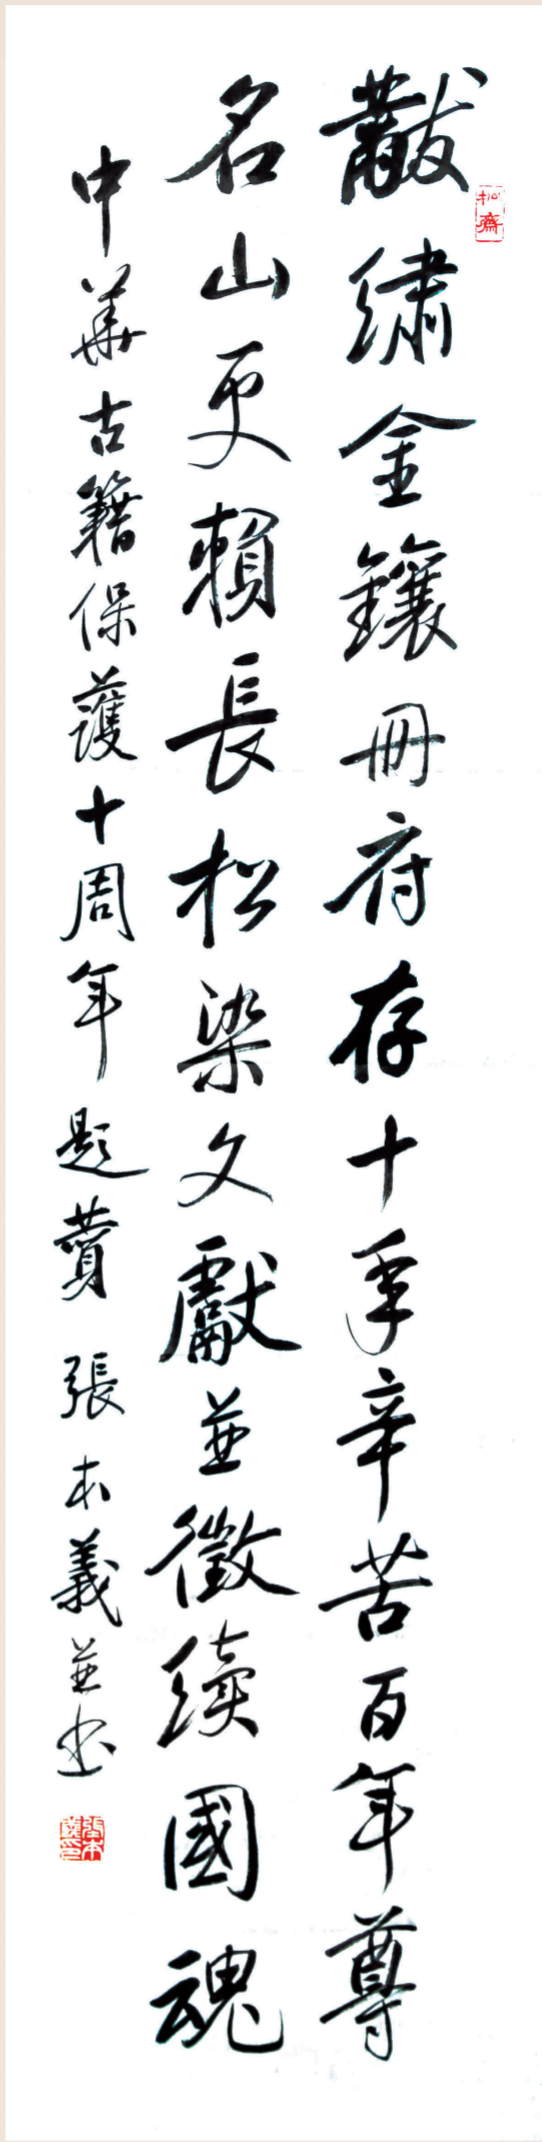 黻繡金鑲冊府存十年辛苦百年尊
名山更賴長松染文獻並徵續國魂
中華古籍保護十周年題贊 張本義並书
松齋
張本義印